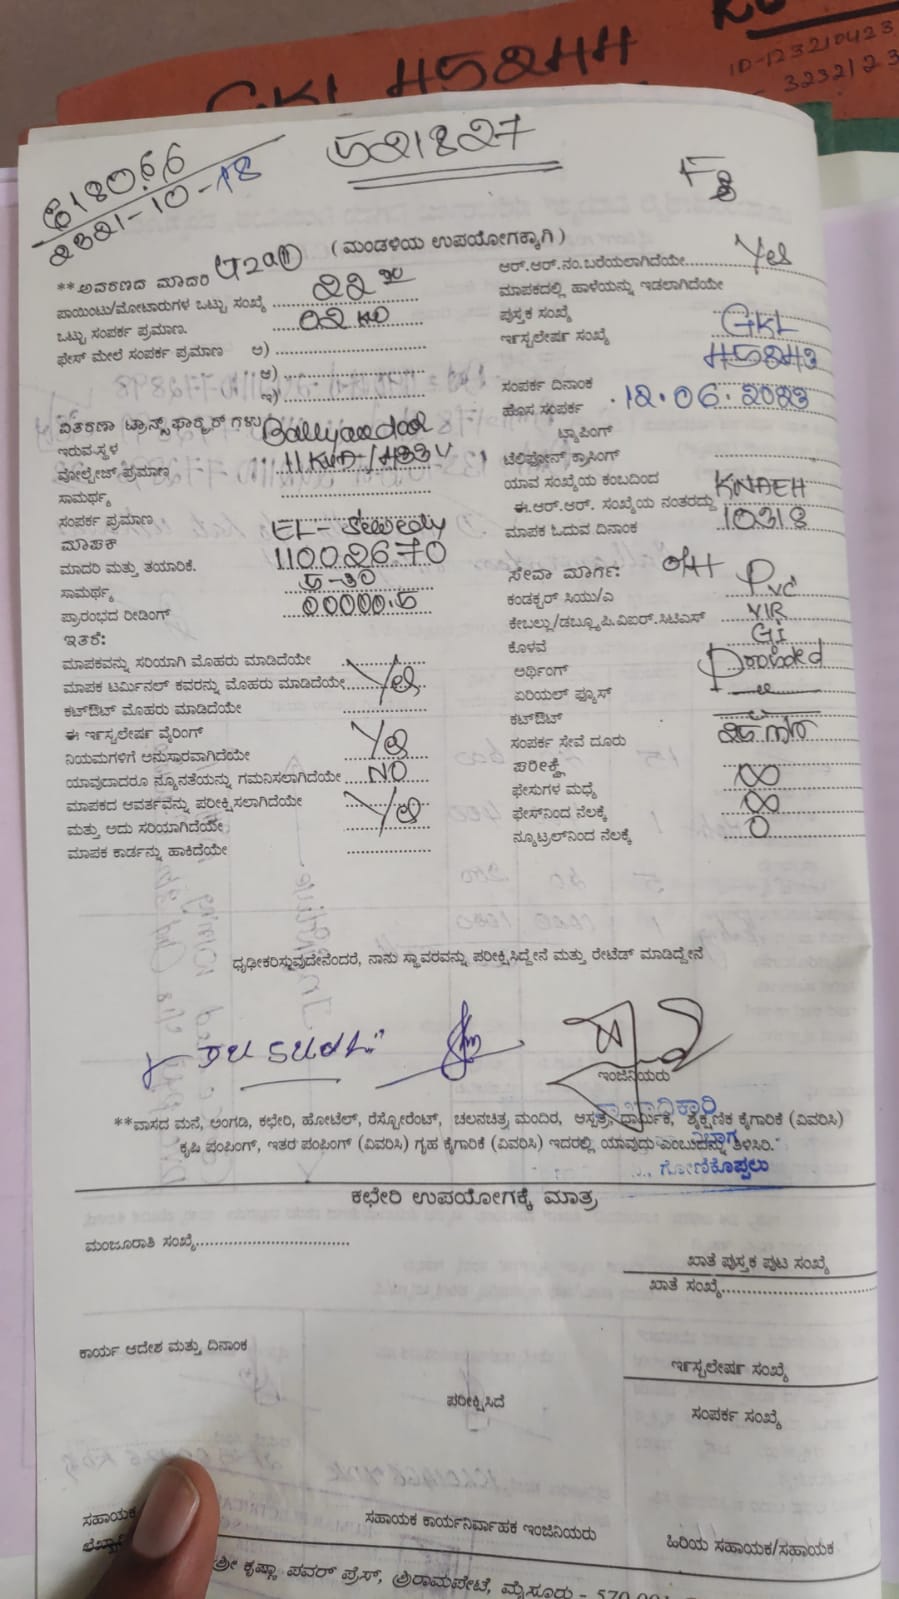 GKL 45244
ID-123210423
3232123
618066
521827
2321-10-18
(ಮಂಡಳಿಯ ಉಪಯೋಗಕ್ಕಾಗಿ)
**ಅವರಣದ ಮಾದರಿ
ಪಾಯಿಂಟು/ಮೋಟಾರುಗಳ ಒಟ್ಟು ಸಂಖ್ಯೆ
ಒಟ್ಟು ಸಂಪರ್ಕ ಪ್ರಮಾಣ.
ಫೇಸ್ ಮೇಲೆ ಸಂಪರ್ಕ ಪ್ರಮಾಣ ಅ)
ಆ)
ಇ)
ವಿತರಣಾ ಟ್ರಾನ್ಸ್‌ಫಾರ್ಮರ್‌ಗಳು
ಇರುವ ಸ್ಥಳ
ವೋಲ್ಟೇಜ್ ಪ್ರಮಾಣ 11KVA/433V
ಸಾಮರ್ಥ್ಯ
ಸಂಪರ್ಕ ಪ್ರಮಾಣ
ಮಾಪಕ
ಮಾದರಿ ಮತ್ತು ತಯಾರಿಕೆ. 11002670
ಸಾಮರ್ಥ್ಯ 5-30
ಪ್ರಾರಂಭದ ರೀಡಿಂಗ್ 00000.5
ಇತರೆ:
ಮಾಪಕವನ್ನು ಸರಿಯಾಗಿ ಮೊಹರು ಮಾಡಿದೆಯೇ
ಮಾಪಕ ಟರ್ಮಿನಲ್ ಕವರನ್ನು ಮೊಹರು ಮಾಡಿದೆಯೇ Yes
ಕಟ್‌ಔಟ್ ಮೊಹರು ಮಾಡಿದೆಯೇ
ಈ ರ್ಇಸ್ಟಲೇರ್ಷ ವೈರಿಂಗ್
ನಿಯಮಗಳಿಗೆ ಅನುಸಾರವಾಗಿದೆಯೇ Yes
ಯಾವುದಾದರೂ ನ್ಯೂನತೆಯನ್ನು ಗಮನಿಸಲಾಗಿದೆಯೇ NO
ಮಾಪಕದ ಆವರ್ತವನ್ನು ಪರೀಕ್ಷಿಸಲಾಗಿದೆಯೇ Yes
ಮತ್ತು ಅದು ಸರಿಯಾಗಿದೆಯೇ
ಮಾಪಕ ಕಾರ್ಡನ್ನು ಹಾಕಿದೆಯೇ
ಆರ್.ಆರ್.ನಂ.ಬರೆಯಲಾಗಿದೆಯೇ Yes
ಮಾಪಕದಲ್ಲಿ ಹಾಳೆಯನ್ನು ಇಡಲಾಗಿದೆಯೇ
ಪುಸ್ತಕ ಸಂಖ್ಯೆ GKL
ರ್ಇಸ್ಟಲೇರ್ಷ ಸಂಖ್ಯೆ 45243
ಸಂಪರ್ಕ ದಿನಾಂಕ
ಹೊಸ ಸಂಪರ್ಕ 12.06.2023
ಟ್ಯಾಪಿಂಗ್
ಟೆಲಿಫೋನ್ ಕ್ರಾಸಿಂಗ್
ಯಾವ ಸಂಖ್ಯೆಯ ಕಂಬದಿಂದ
ಈ.ಆರ್.ಆರ್. ಸಂಖ್ಯೆಯ ನಂತರದ್ದು KNAEH
ಮಾಪಕ ಓದುವ ದಿನಾಂಕ 10318
ಸೇವಾ ಮಾರ್ಗ: O/H
ಕಂಡಕ್ಟರ್ ಸಿಯು/ಎ Pvc
ಕೇಬಲ್ಲು/ಡಬ್ಲ್ಯೂ.ಪಿ.ವಿಐರ್.ಸಿಟಿಎಸ್ VIR
ಕೊಳವೆ GI
ಅರ್ಥಿಂಗ್ Provided
ಏರಿಯಲ್ ಫ್ಯೂಸ್
ಕಟ್‌ಔಟ್
ಸಂಪರ್ಕ ಸೇವೆ ದೂರು 25 mtr
ಪರೀಕ್ಷೆ
ಫೇಸುಗಳ ಮಧ್ಯೆ ∞
ಫೇಸ್‌ನಿಂದ ನೆಲಕ್ಕೆ ∞
ನ್ಯೂಟ್ರಲ್‌ನಿಂದ ನೆಲಕ್ಕೆ 0
ಧೃಢೀಕರಿಸ್ತುವುದೇನೆಂದರೆ, ನಾನು ಸ್ಥಾವರವನ್ನು ಪರೀಕ್ಷಿಸಿದ್ದೇನೆ ಮತ್ತು ರೇಟೆಡ್ ಮಾಡಿದ್ದೇನೆ
ಇಂಜಿನಿಯರು
**ವಾಸದ ಮನೆ, ಅಂಗಡಿ, ಕಛೇರಿ, ಹೋಟೆಲ್, ರೆಸ್ಟೋರೆಂಟ್, ಚಲನಚಿತ್ರ ಮಂದಿರ, ಆಸ್ಪತ್ರೆ, ಧಾರ್ಮಿಕ, ಶೈಕ್ಷಣಿಕ ಕೈಗಾರಿಕೆ (ವಿವರಿಸಿ)
ಕೃಷಿ ಪಂಪಿಂಗ್, ಇತರ ಪಂಪಿಂಗ್ (ವಿವರಿಸಿ) ಗೃಹ ಕೈಗಾರಿಕೆ (ವಿವರಿಸಿ) ಇದರಲ್ಲಿ ಯಾವುದು ಎಂಬುದನ್ನು ತಿಳಿಸಿರಿ.
ಗೋಣಿಕೊಪ್ಪಲು
ಕಛೇರಿ ಉಪಯೋಗಕ್ಕೆ ಮಾತ್ರ
ಮಂಜೂರಾತಿ ಸಂಖ್ಯೆ
ಖಾತೆ ಪುಸ್ತಕ ಪುಟ ಸಂಖ್ಯೆ
ಖಾತೆ ಸಂಖ್ಯೆ
ಕಾರ್ಯ ಆದೇಶ ಮತ್ತು ದಿನಾಂಕ
ರ್ಇಸ್ಟಲೇರ್ಷ ಸಂಖ್ಯೆ
ಪರೀಕ್ಷಿಸಿದೆ
ಸಂಪರ್ಕ ಸಂಖ್ಯೆ
ಸಹಾಯಕ
ಸಹಾಯಕ ಕಾರ್ಯನಿರ್ವಾಹಕ ಇಂಜಿನಿಯರು
ಹಿರಿಯ ಸಹಾಯಕ/ಸಹಾಯಕ
ಶ್ರೀ ಕೃಷ್ಣಾ ಪವರ್ ಪ್ರೆಸ್, ಶ್ರೀರಾಮಪೇಟೆ, ಮೈಸೂರು - 570 001